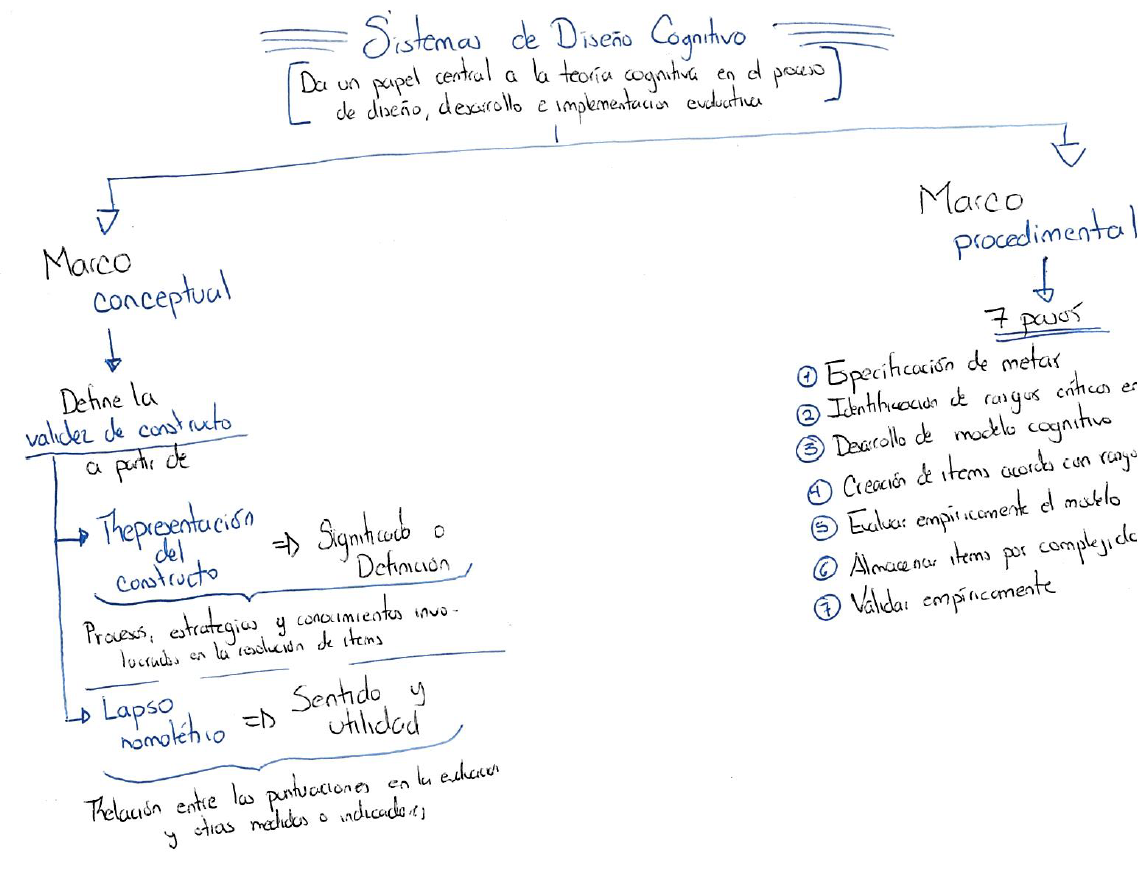 Sistemas de Diseño Cognitivo
[Da un papel central a la teoría cognitiva en el proceso
de diseño, desarrollo e implementación evaluativa]
Marco
conceptual
Define la
validez de constructo
a partir de
Representación
del
constructo
⇒ Significado o
Definición
Procesos, estrategias y conocimientos invo-
lucrados en la resolución de items
Lapso
nomotético
⇒ Sentido y
utilidad
Relación entre las puntuaciones en la evaluación
y otras medidas o indicadores
Marco
procedimental
7 pasos
1 Especificación de metas
2 Identificación de rasgos críticos en
3 Desarrollo de modelo cognitivo
4 Creación de items acordes con rasgo
5 Evaluar empíricamente el modelo
6 Almacenar items por complejida
7 Validar empíricamente